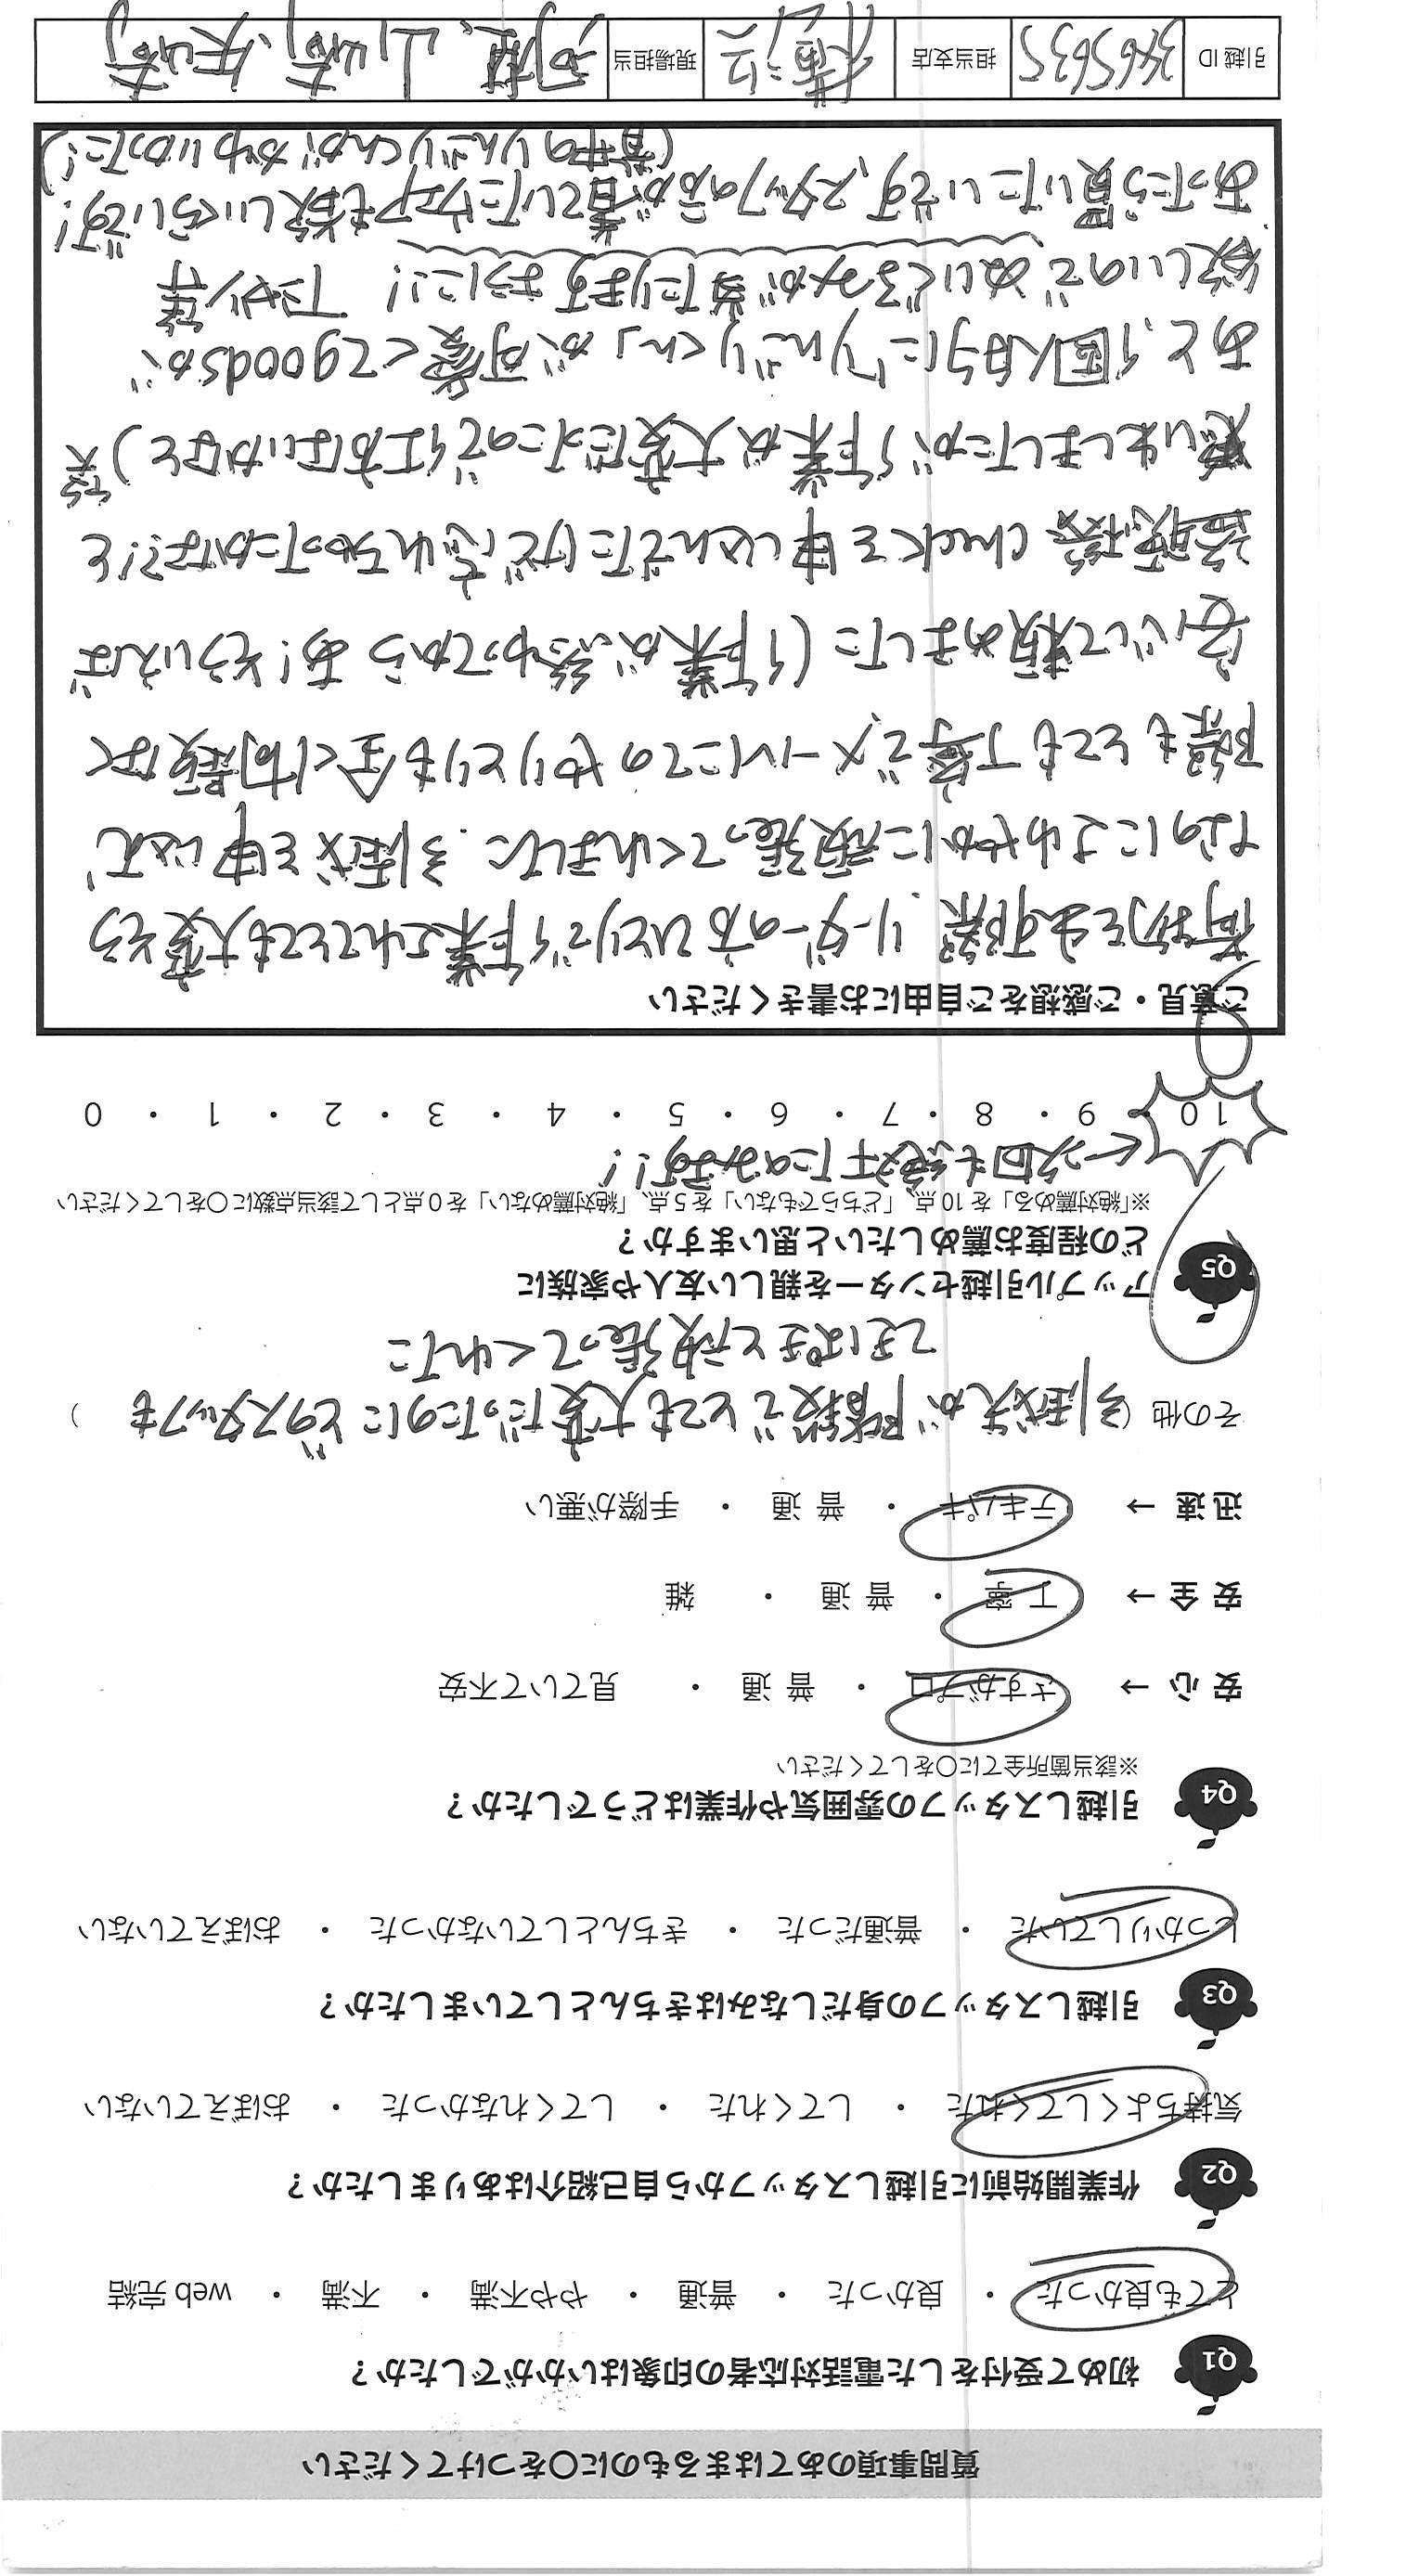 質問事項のあてはまるものに〇をつけてください
Q1 初めて受付をした電話対応者の印象はいかがでしたか？
とても良かった ・ 良かった ・ 普通 ・ やや不満 ・ 不満 ・ web 完結
Q2 作業開始前に引越しスタッフから自己紹介はありましたか？
気持ちよくしてくれた ・ してくれた ・ してくれなかった ・ おぼえていない
Q3 引越しスタッフの身だしなみはきちんとしていましたか？
しっかりしていた ・ 普通だった ・ きちんとしていなかった ・ おぼえていない
Q4 引越しスタッフの雰囲気や作業はどうでしたか？
※該当箇所全てに〇をしてください
安 心 → さすがプロ ・ 普 通 ・ 見ていて不安
安 全 → 丁 寧 ・ 普 通 ・ 雑
迅 速 → テキパキ ・ 普 通 ・ 手際が悪い
その他（引越先が階段でとても大変だったのにどのスタッフも）
てきぱきと頑張ってくれた
Q5 アップル引越センターを親しい友人や家族に
どの程度お薦めしたいと思いますか？
※「絶対薦める」を 10 点、「どちらでもない」を 5 点、「絶対薦めない」を 0 点として該当点数に〇をしてください
←次回も絶対たのみます!!
10 ・ 9 ・ 8 ・ 7 ・ 6 ・ 5 ・ 4 ・ 3 ・ 2 ・ 1 ・ 0
ご意見・ご感想をご自由にお書きください
荷物を出す際、リーダーの方ひとりで作業されてとても大変そう
なのにさわやかに頑張ってくれました。引越を申し込んだ
際もとても丁寧で、メールにてのやりとりも全く問題なく
安心して頼めました（作業が終わってから あ!そういえば
盗聴器 checkを申し込んでたけど忘れちゃったかな?!と
思い出しましたが作業が大変だったので仕方ないかなと）笑
あと、個人的に「りんごりくん」が可愛くてgoodsが
欲しいのでぬいぐるみが当たりますように!!
あったら買いたいです、スタッフの方が着ていたウェアも欲しいくらいです!
（背中のりんごりくんがかわいかった!）
引越 ID 3465635 担当支店 横浜 現場担当 河越、山崎、矢崎